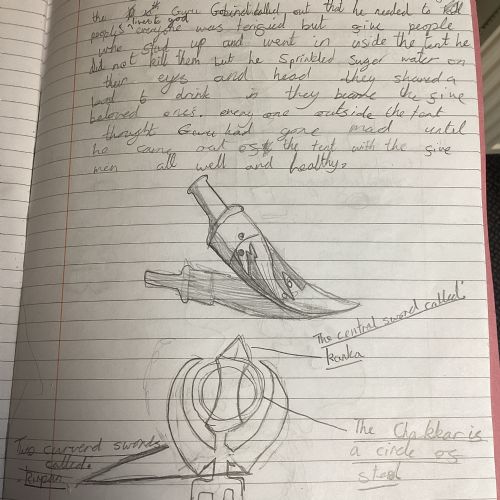 the Guru Gobind called out that he needed to kill
lives to god
peoples everyone was terrified but five people
who stud up and went in uside the tent he
did not kill them but he sprinkled suger water on
their eyes and head they shared a
to drink in they became the five
beloved ones. every one outside the tent
thought Guru had gone mad until
he came out of the tent with the five
men all well and healthy.
The central sword called:
kanka
The Chakkar is
a circle of
steel
Two curverd swords
called.
kirpan